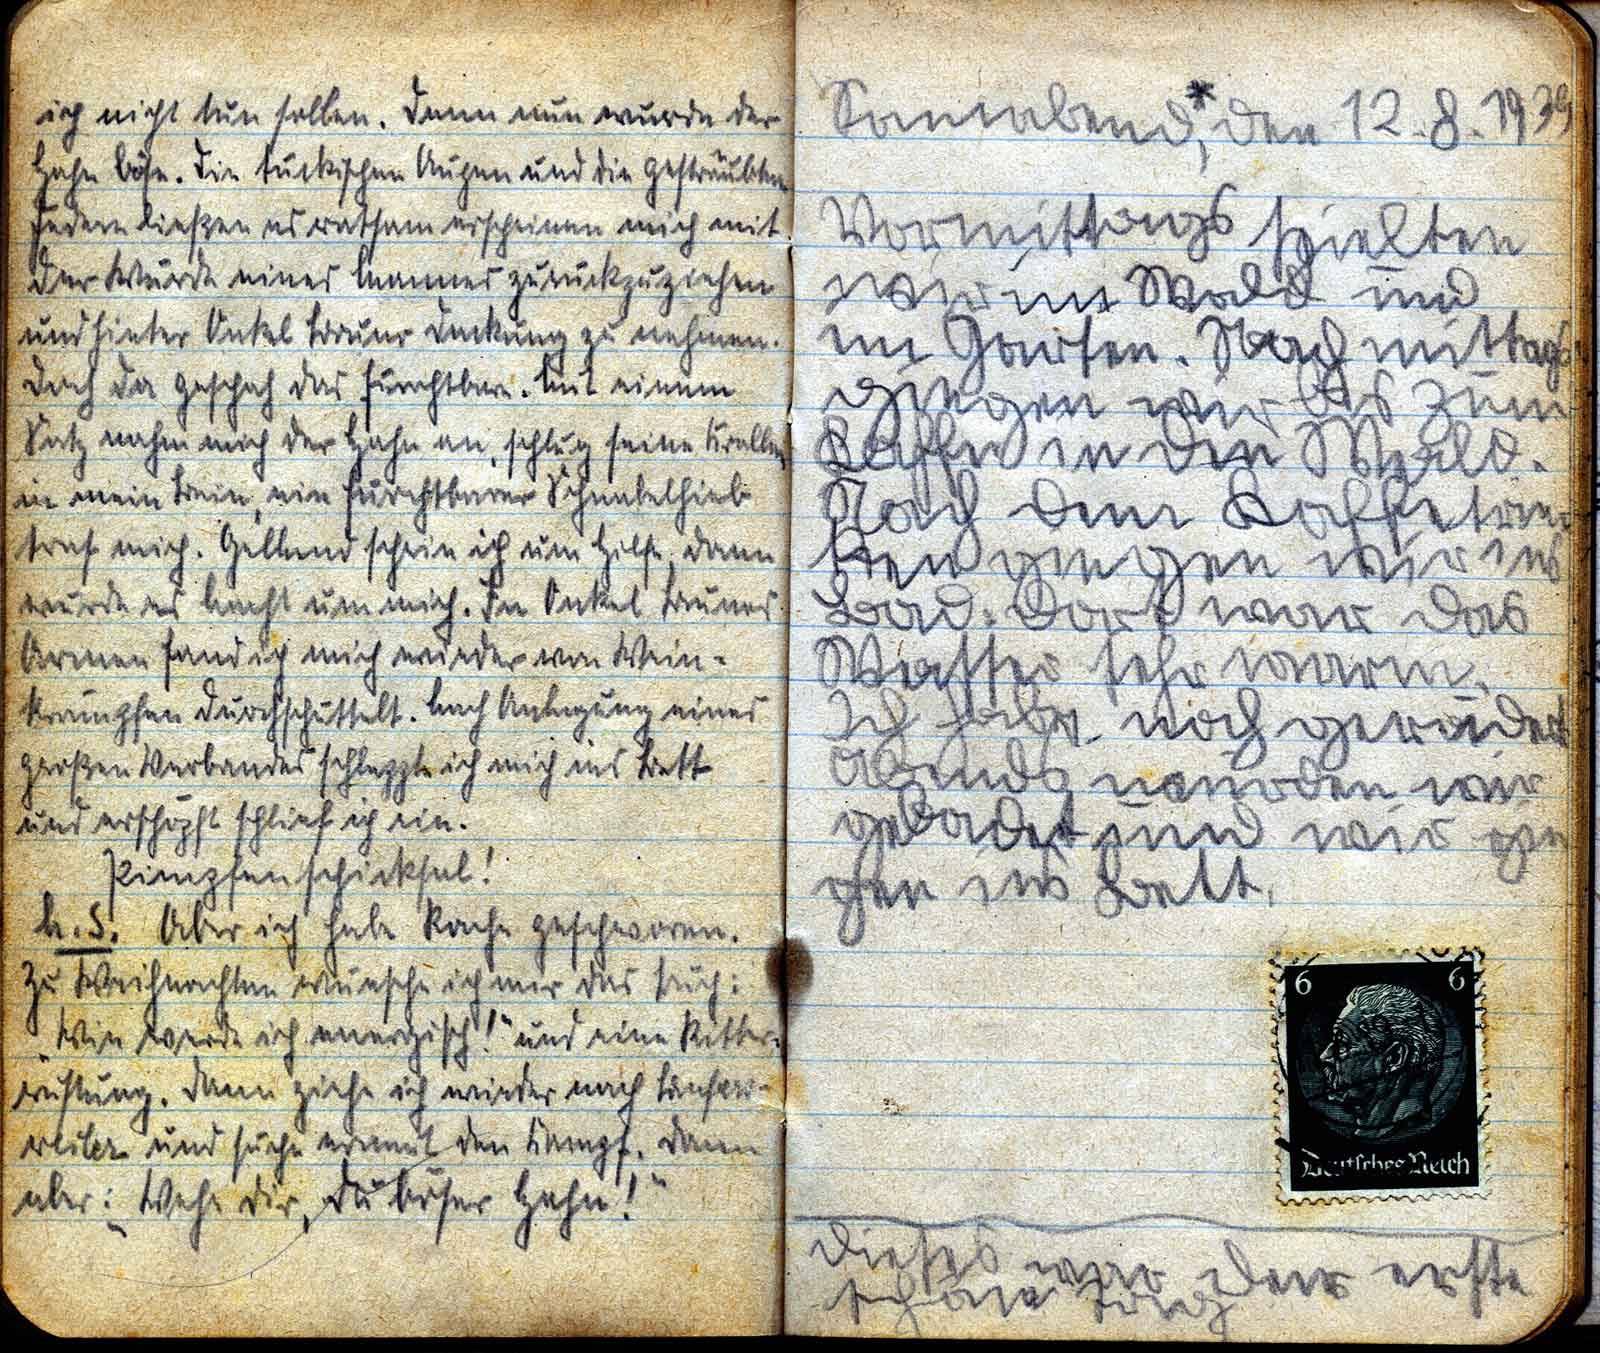 ich nicht tun sollen. Denn nun wurde der
Hahn böse. Die tückischen Augen und die gesträubten
Federn ließen es ratsam erscheinen mich mit
der Würde eines Mannes zurückzuziehen
und hinter Onkel Bruno Deckung zu nehmen.
Doch da geschah das furchtbare. Mit einem
Satz nahm mich der Hahn an, schlug seine Krallen
in mein Bein, ein furchtbarer Schnabelhieb
traf mich. Gellend schrie ich um Hilfe, dann
wurde es Nacht um mich. In Onkel Brunos
Armen fand ich mich wieder von Wein-
krämpfen durchschüttelt. Nach Anlegung eines
großen Verbandes schleppte ich mich ins Bett
und erschöpft schlief ich ein.
Pimpfenschicksal!
N.S. Aber ich habe Rache geschworen.
Zu Weihnachten wünsche ich mir das Buch:
"Wie werde ich energisch!" und eine Ritter-
rüstung. Dann ziehe ich wieder nach
und suche erneut den Kampf. Dann
aber: "Wehe dir, Du böser Hahn!"
Sonnabend, den 12.8.1939
*
Vormittags spielten
wir im Wald und
im Garten. Nachmittags
gingen wir bis zum
Kaffe in den Wald.
Nach dem Kaffetrin-
ken gingen wir ins
Bad. Dort war das
Wasser sehr warm.
Ich habe noch gerudert
Abends wurden wir
gebadet und wir gin
gen ins Bett.
6 6
Deutsches Reich
Dieses war der erste
schöne Tag